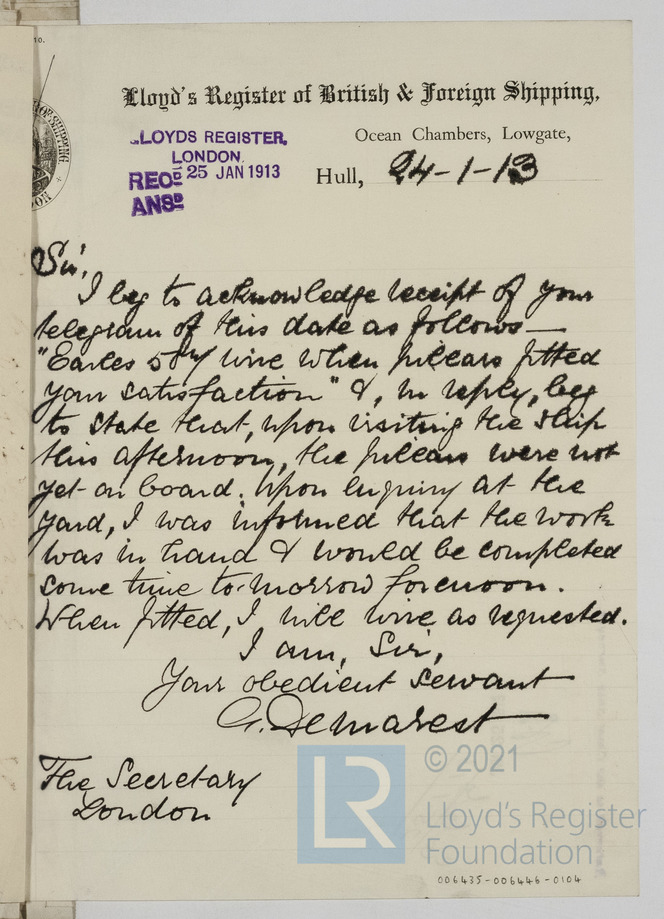 Lloyd's Register of British & Foreign Shipping,
Ocean Chambers, Lowgate,
LLOYDS REGISTER,
LONDON.
RECD 25 JAN 1913
ANSD
Hull, 24-1-13
Sir,
I beg to acknowledge receipt of your
telegram of this date as follows—
"Earles wire when pillars fitted
your satisfaction" &, in reply, beg
to state that, upon visiting the ship
this afternoon, the pillars were not
yet on board. Upon enquiry at the
yard, I was informed that the work
was in hand & would be completed
some time to-morrow forenoon.
When fitted, I will wire as requested.
I am, Sir,
Your obedient servant
G. Demarest
The Secretary
London
LR
© 2021
Lloyd's Register
Foundation
006435-006446-0104